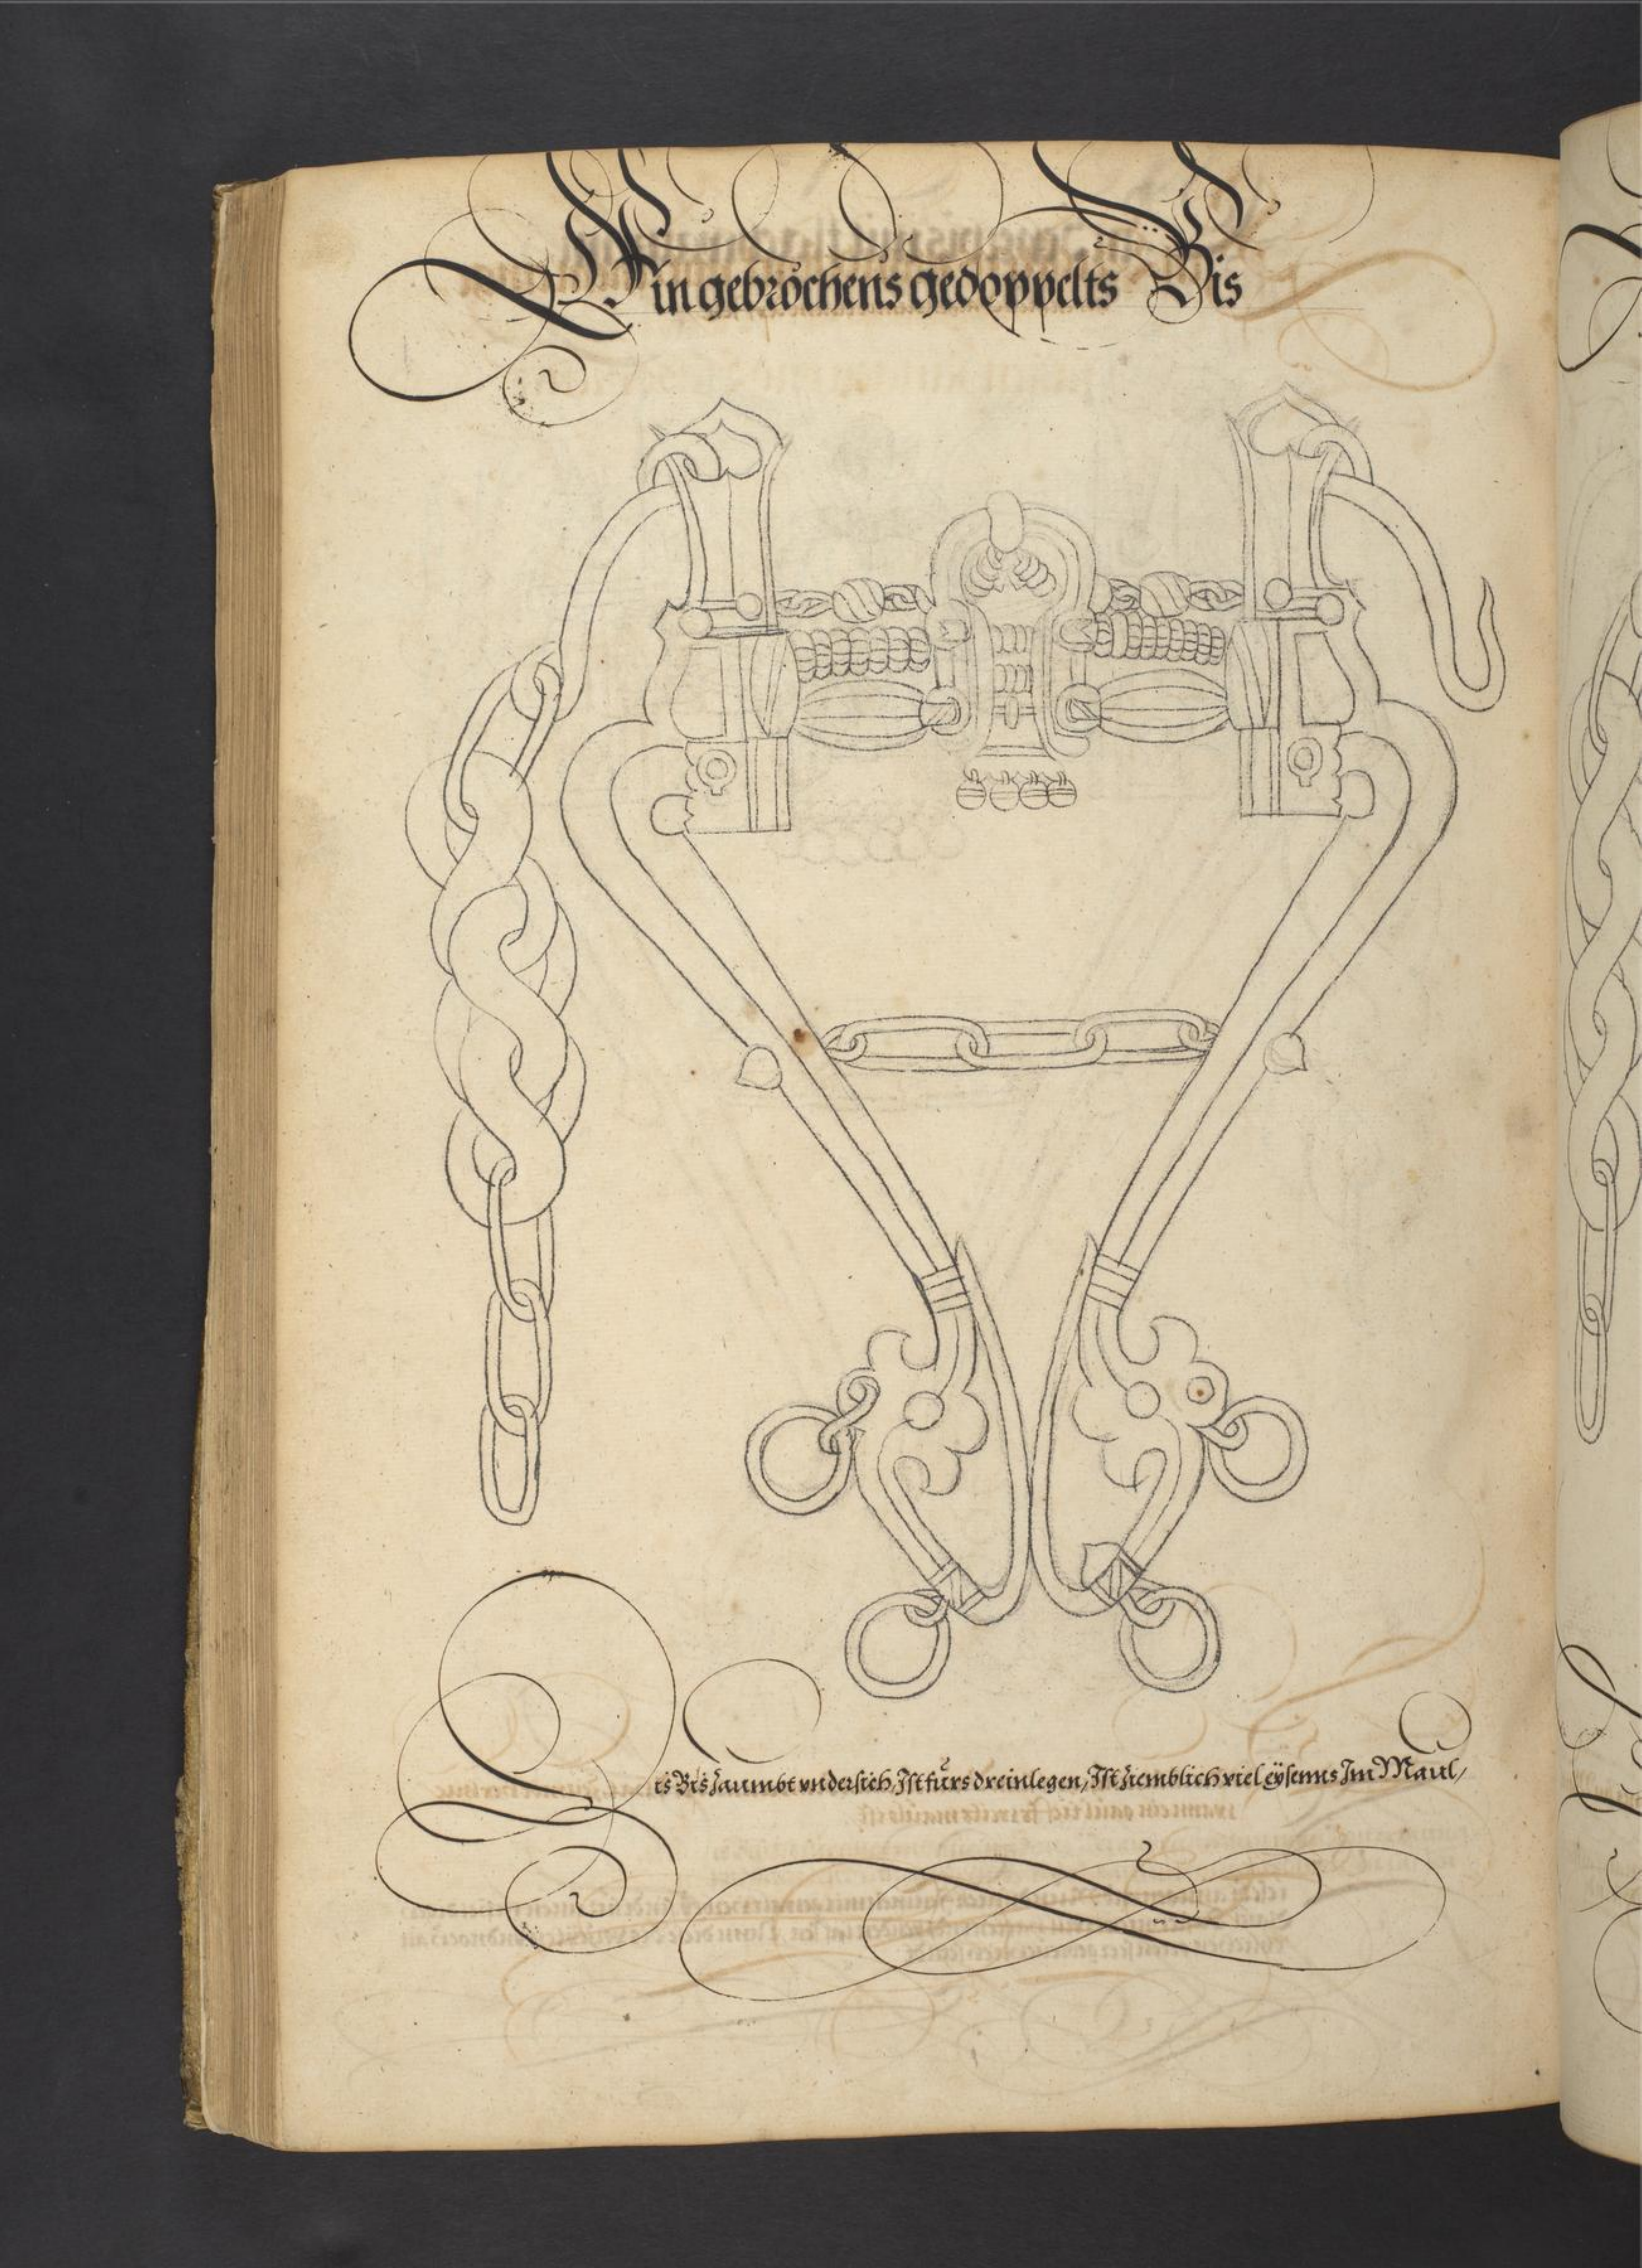 Ein gebrochens gedoppelts Bis
Dis Bis Zaumbt vndersich, Ist fürs dreinlegen, Ist Ziemblich viel eÿsenns Im Maul,